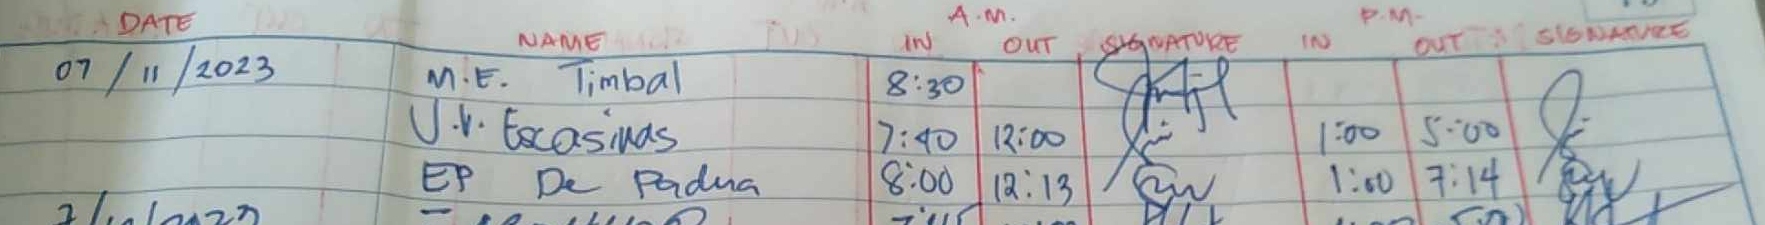 A.M. P.M.
DATE NAME IN OUT SIGNATURE IN OUT SIGNATURE
07/11/2023 M.E. Timbal 8:30
J.V. Escasinas 7:40 12:00 1:00 5:00
EP De Padua 8:00 12:13 1:00 7:14